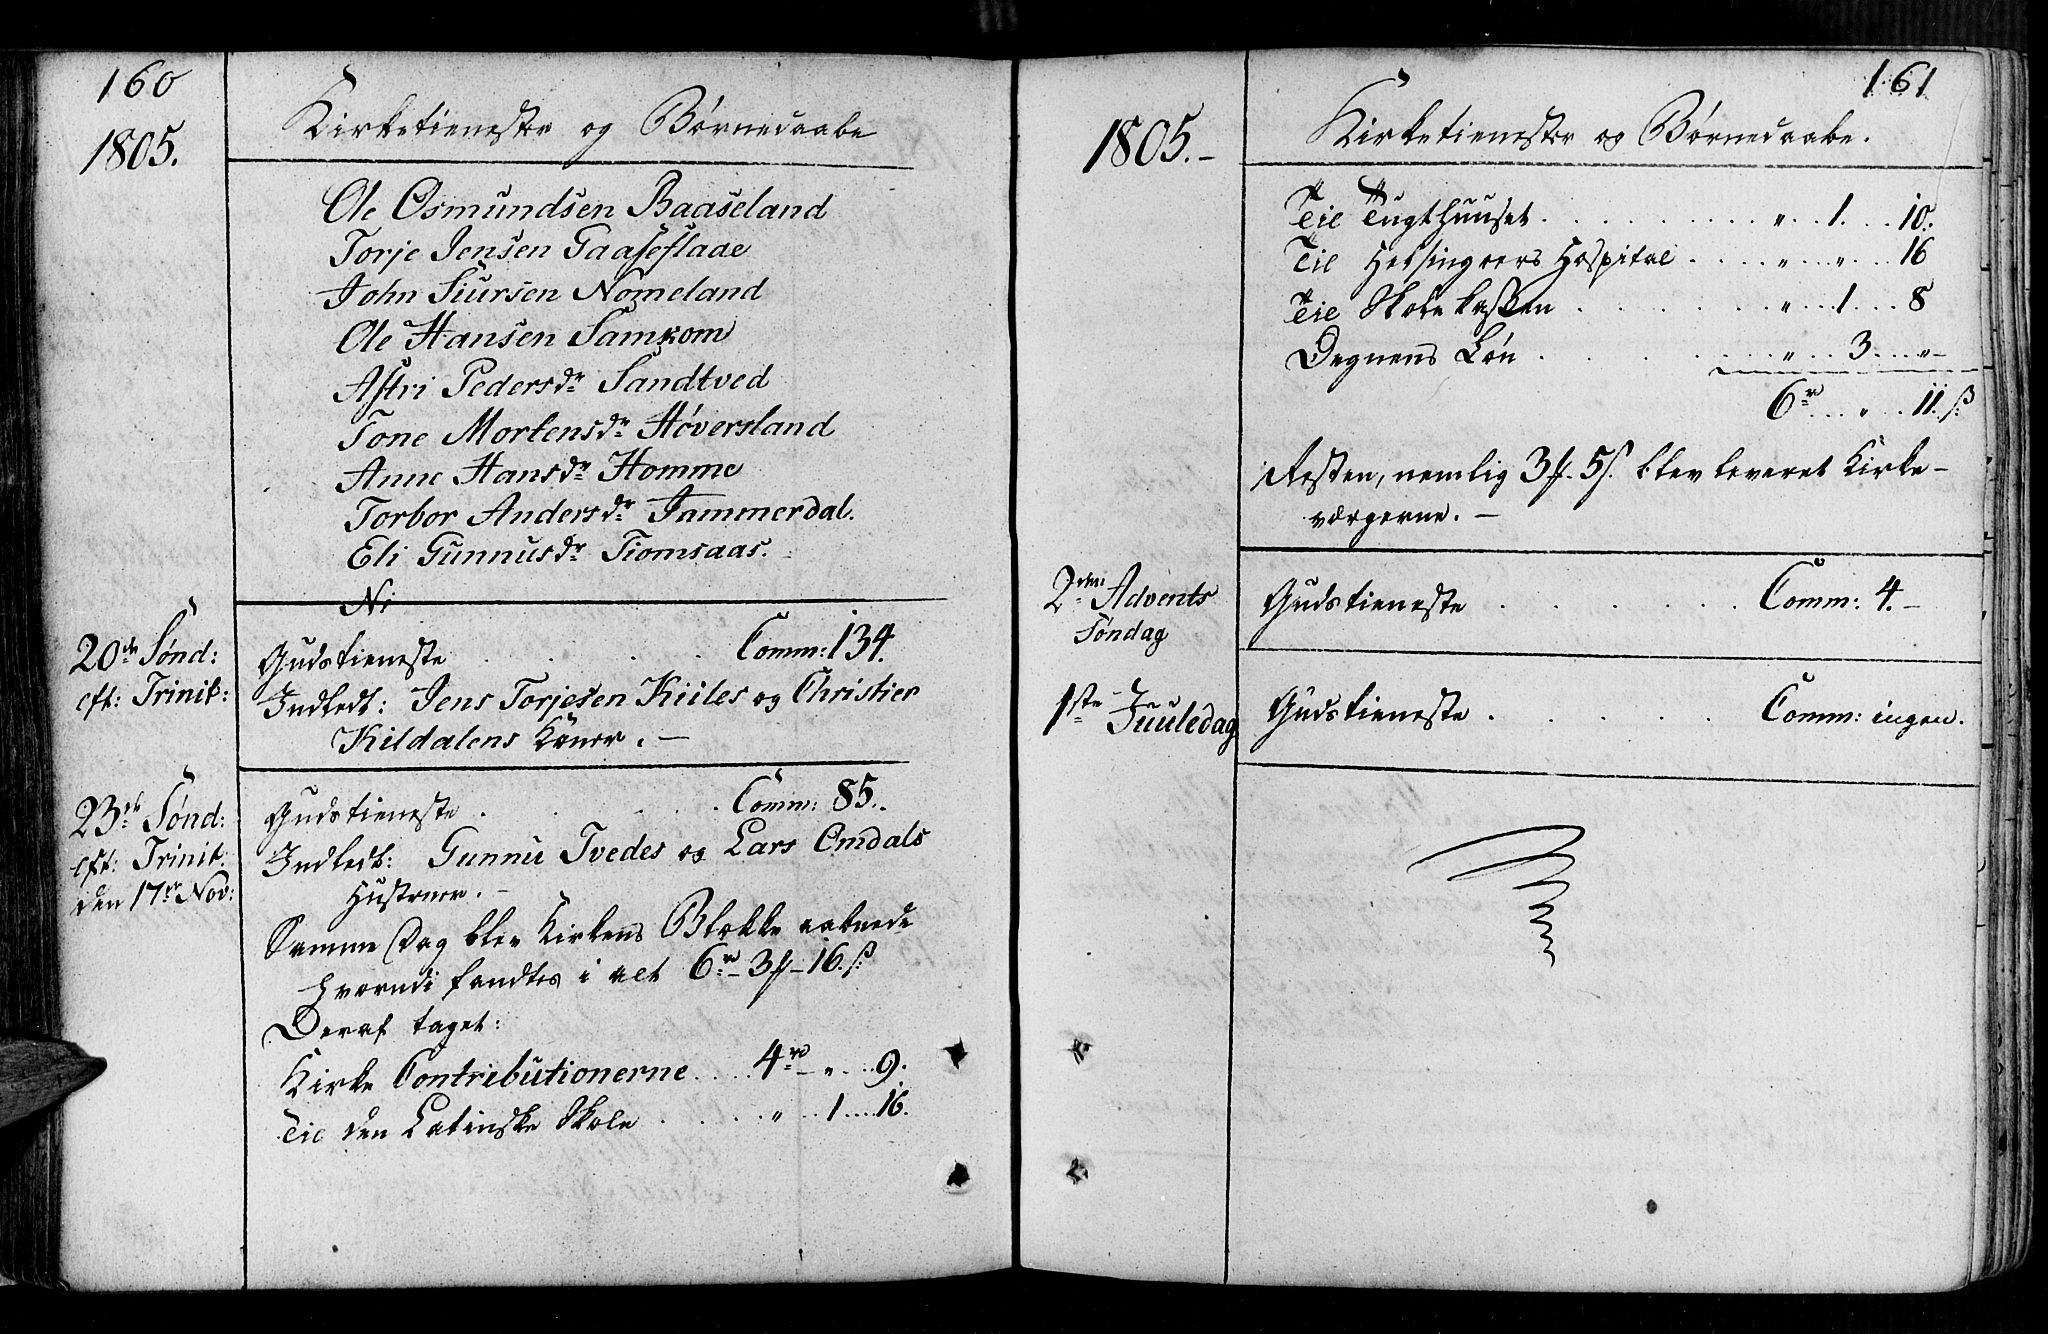 160
1805.
Kirketieneste og Børnedaabe
Ole Osmundsen Baaseland
Torje Jensen Gaaseflaae
John Siursen Nomeland
Ole Hansen Samkom
Astri Pedersdr Sandtved
Tone Mortensdr Høversland
Anne Hansdr Homme
Torbor Andersdr Jammerdal.
Eli Gunnusdr Tiomsaas.
Ni
20de Sønd:
eft: Trinit:
Gudstieneste . . . . . Comm: 134.
Indledt: Jens Torjesen Kiiles og Christier
Kildalens Koner. –
23de Sønd:
eft: Trinit:
den 17de Nov:
Gudstieneste . . . . . Comm: 85.
Indledt: Gunnu Tvedes og Lars Omdals
Hustruer. –
Samme Dag blev Kirkens Blokke aabnede
hvorudi fandtes i alt 6rd – 3 f – 16. ß
Deraf taget:
Kirke Contributionerne . . . . 4rd – „ . . . 9.
Til den Latinske Skole . . . . . „ . . 1 . . . 16.
161
1805. –
Kirketieneste og Børnedaabe.
Til Tugthuuset . . . . . . . . „ . . 1. . . 10.
Til Helsingøers Hospital . . . . „ . . „ . . . 16
Til Skole kassen . . . . . . . „ . . 1 . . . 8
Degnens Løn . . . . . . . . „ . . 3 . . . „ –
6rd . . . „ . . . 11. ß
Resten, nemlig 3 f. 5 ß. blev leveret Kirke-
værgerne. –
2den Advents
Søndag
Gudstieneste . . . . . . Comm: 4. –
1ste Juuledag
Gudstieneste . . . . . . Comm: ingen.